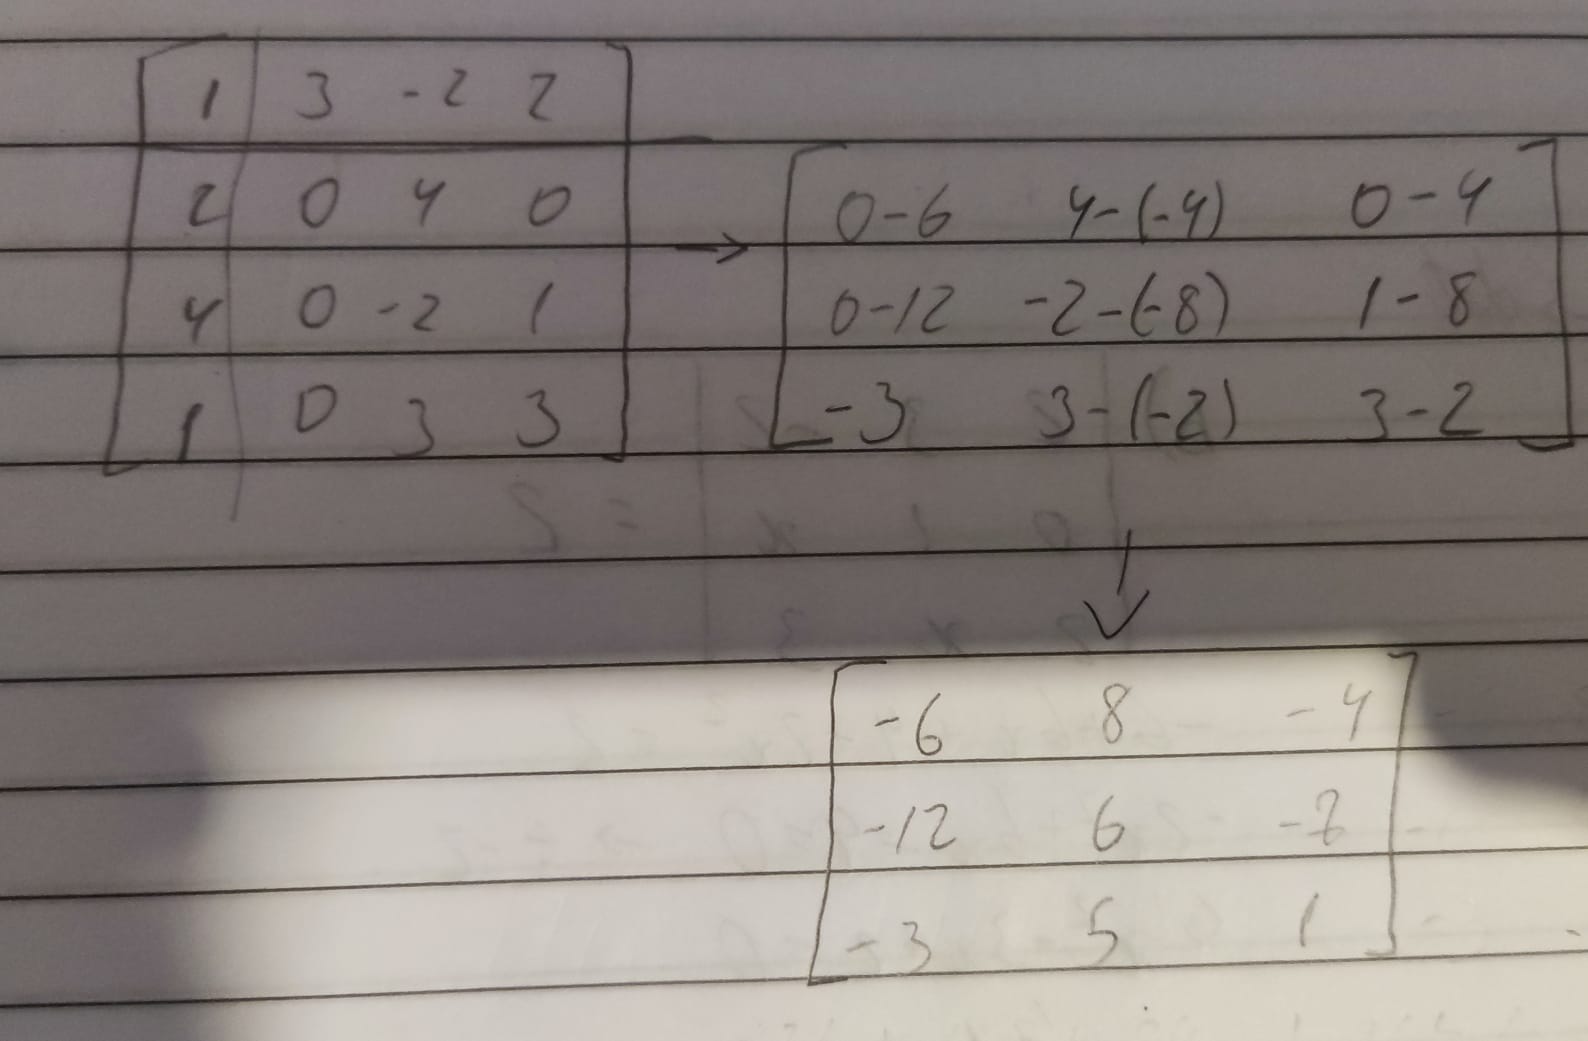 1 3 -2 2
2 0 4 0
4 0 -2 1
1 0 3 3
→
0-6 4-(-4) 0-4
0-12 -2-(-8) 1-8
-3 3-(-2) 3-2
↓
-6 8 -4
-12 6 -7
-3 5 1